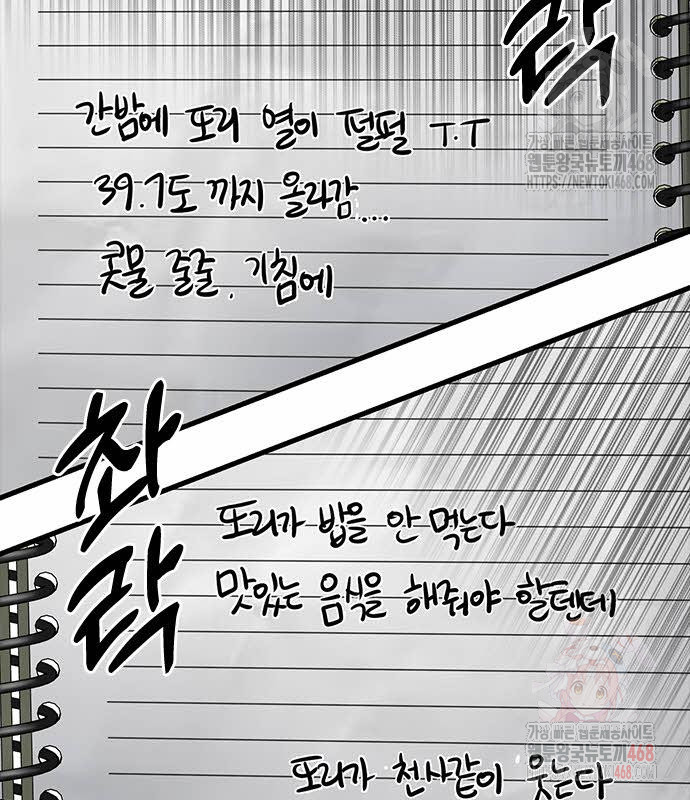 락
간밤에 또리 열이 펄펄 T.T
39.7도 까지 올라감...
콧물 줄줄, 기침에
촤락
또리가 밥을 안 먹는다
맛있는 음식을 해줘야 할텐데
또리가 천사같이 웃는다
가장 빠른 웹툰제공사이트
웹툰왕국뉴토끼468
HTTPS://NEWTOKI468.COM
가장 빠른 웹툰제공사이트
웹툰왕국뉴토끼468
HTTPS://NEWTOKI468.COM